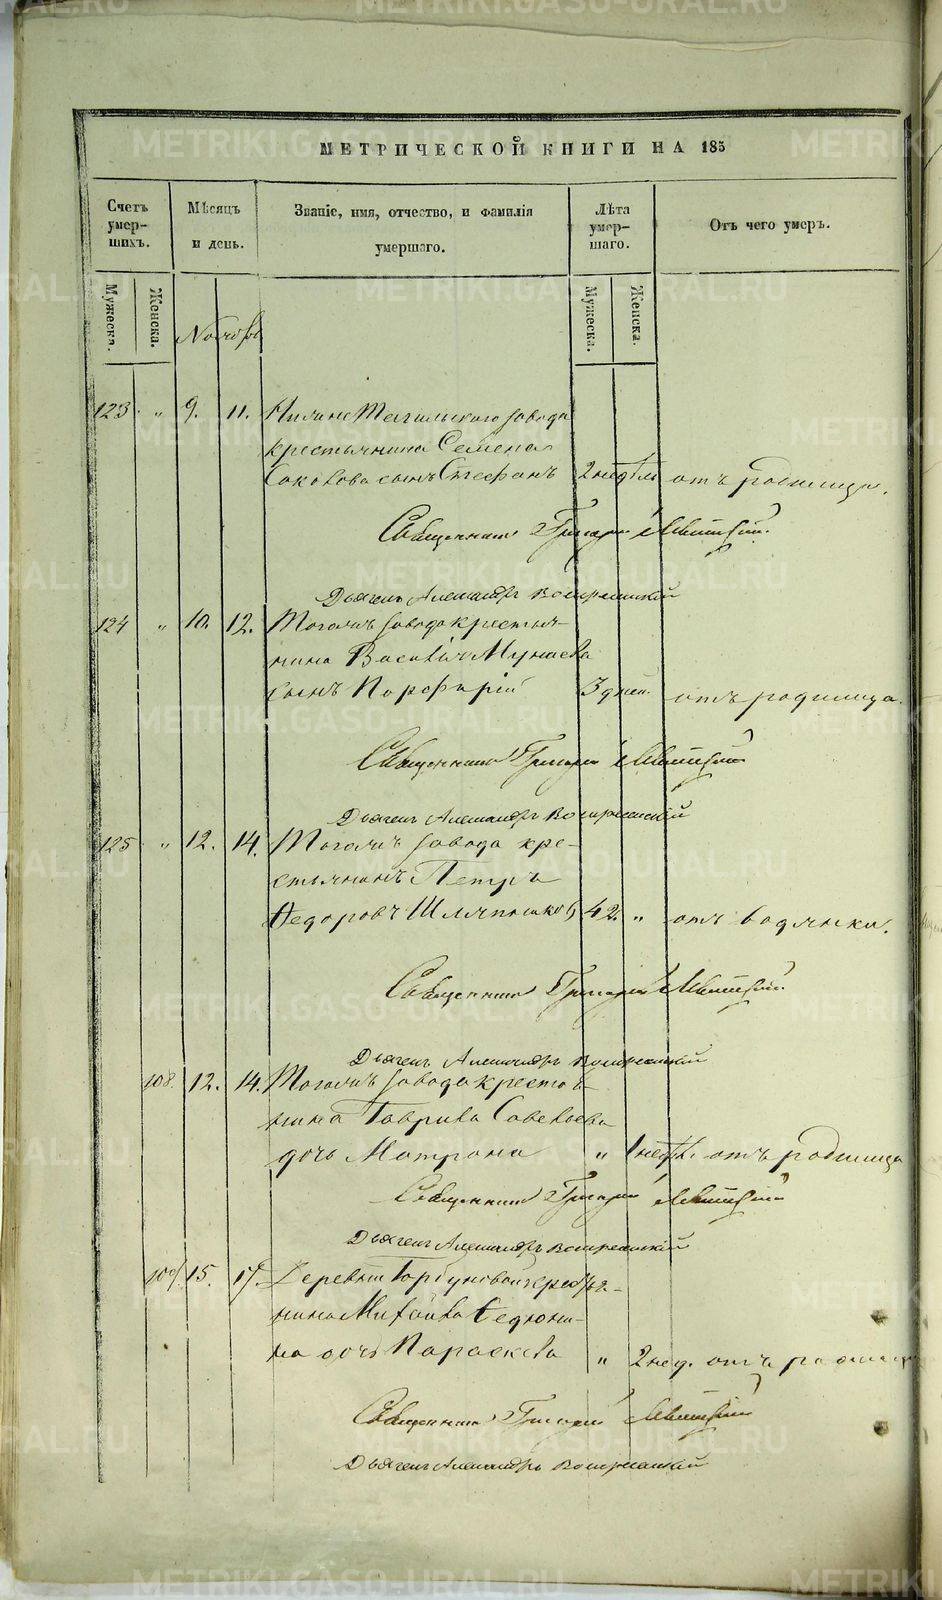 МЕТРИЧЕСКОЙ КНИГИ НА 185
Счетъ умер- шихъ.
Мѣсяцъ и день.
Званіе, имя, отчество, и фамилія умершаго.
Лѣта умер- шаго.
Отъ чего умеръ.
Мужеска.
Женска.
Мужеска.
Женска.
Ноябрь
123 „ 9. 11. Нижне Тагильскаго завода
крестьянина Семена
Соколова сынъ Стефанъ 2 недѣль отъ родимца.
Священникъ Григорій Левитскій.
Дьяконъ Александръ Воскресенскій
124 „ 10. 12. Тогожъ завода крестья-
нина Василія Мунаева
сынъ Порфирій 3 дней. отъ родимца.
Священникъ Григорій Левитскій
Дьяконъ Александръ Воскресенскій
125 „ 12. 14. Тогожъ завода кре-
стьянинъ Петръ
Ѳедоровъ 42. „ отъ водянки.
Священникъ Григорій Левитскій.
Дьяконъ Александръ Воскресенскій
108. 12. 14. Тогожъ завода крестья-
нина Гаврила Савельева
дочь Матрона „ 1 нед. отъ родимца
Священникъ Григорій Левитскій
Дьяконъ Александръ Воскресенскій
109. 15. 17. Деревни Горбуновой крестья-
нина Михаила Ѳедюни-
на дочь Параскева „ 2 нед. отъ родимца
Священникъ Григорій Левитскій
Дьяконъ Александръ Воскресенскій
METRIKI.GASO-URAL.RU